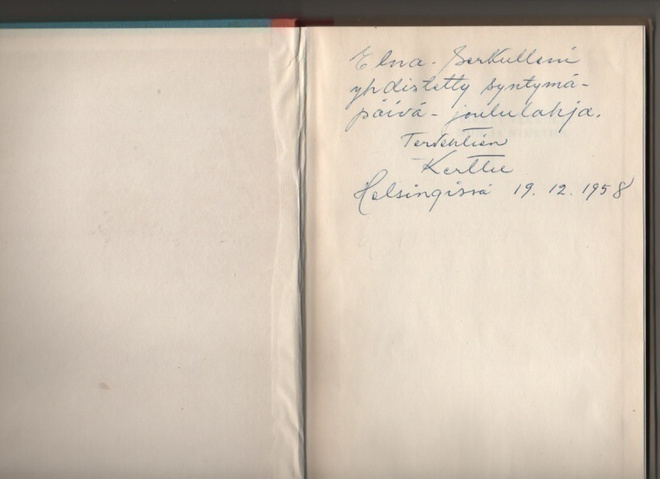 Elna-Serkulleni
yhdistetty syntymä-
päivä-joululahja.
Tervehtien
Kerttu
Helsingissä 19.12.1958